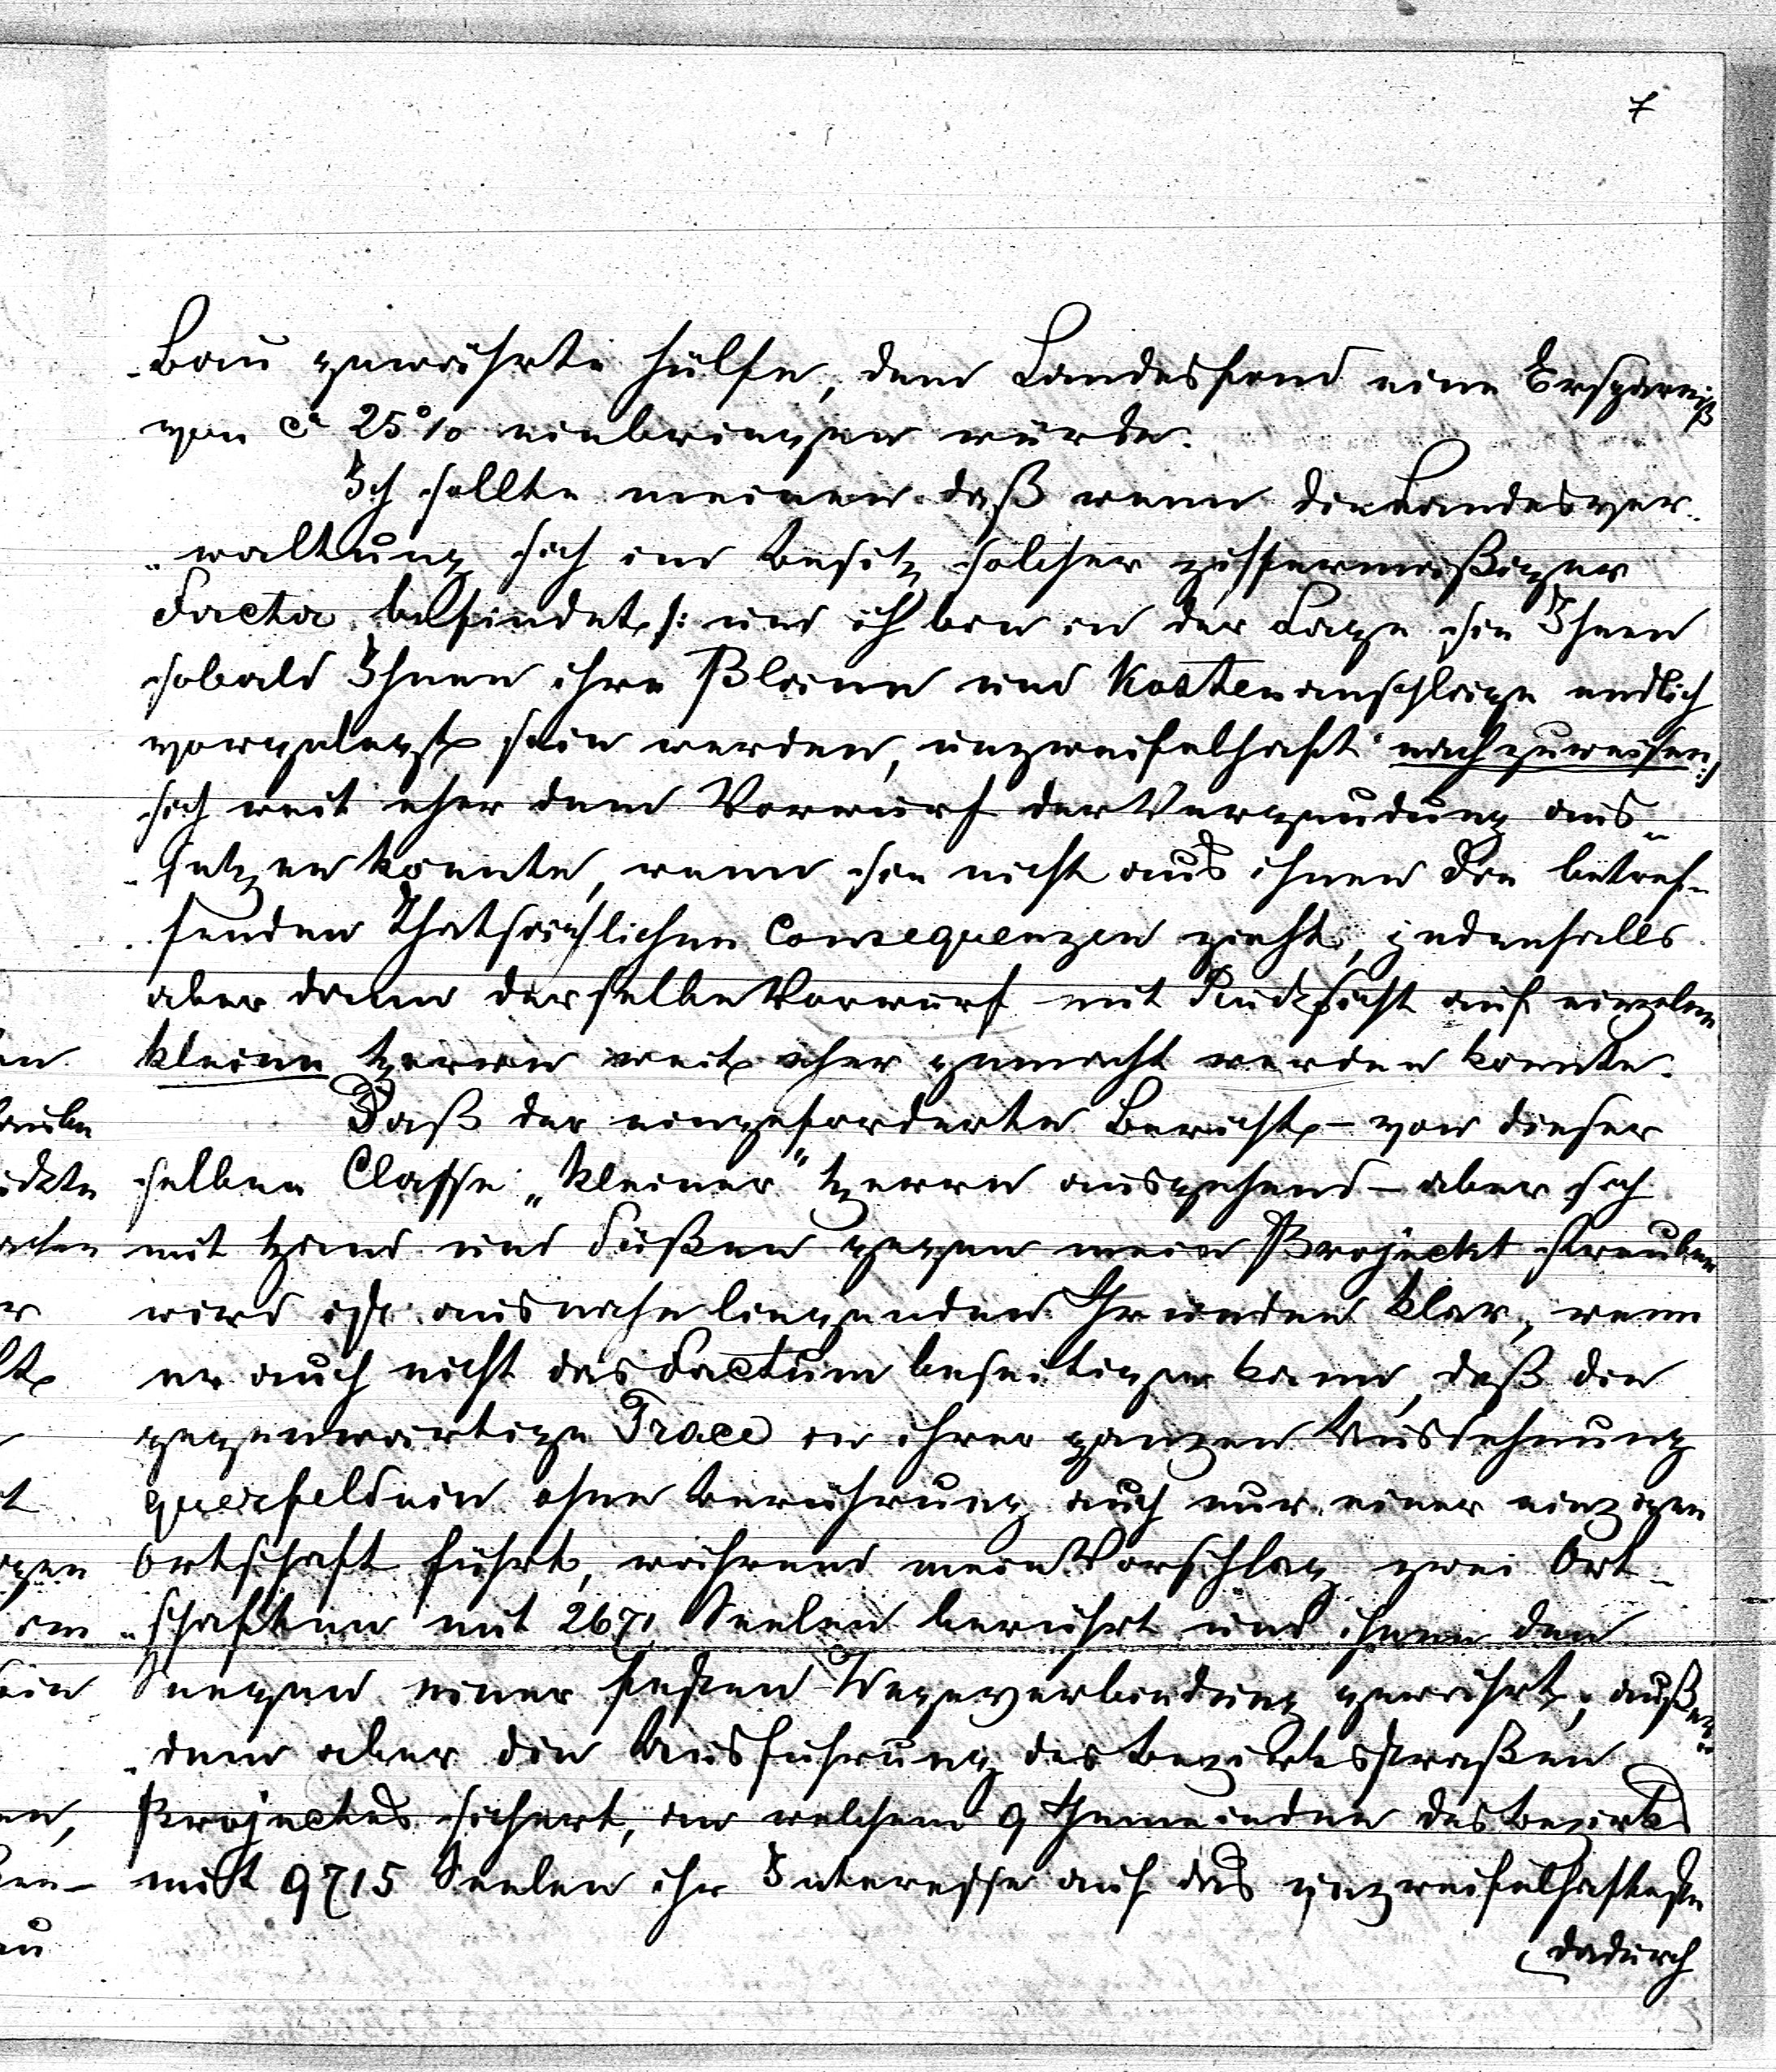 7
Bau gewährte Hülfe, dem Landesfond eine Ersparniß
von ca 25% einbringen würde.
Ich sollte meinen daß wenn die Landesver-
waltung sich im Besitz solcher ziffermäßiger
Facta befindet /: und ich bin in der Lage sie Ihnen
sobald Ihnen ihre Pläne und Kostenanschläge endlich
vorgelegt sein werden, unzweifelhaft nachzuweisen :/
sich weit eher dem Vorwurf der Vergeudung aus-
setzen könnte, wenn sie nicht aus ihnen die betref-
fenden thatsächlichen Consequenzen zieht, jedenfalls
aber dann derselbe Vorwurf mit Rücksicht auf einzelne
kleine Herren weit eher gemacht werden könnte.
Daß der eingeforderte Bericht – von dieser
selben Classe „kleiner" Herrn ausgehend – aber sich
mit Hand und Füßen gegen mein Projeckt sträuben
wird ist aus nahe liegenden Gründen klar, wenn
er auch nicht das Factum beseitigen kann, daß die
gegenwärtige Trace in ihrer ganzen Ausdehnung
querfeldein ohne Berührung auch nur einer einzigen
Ortschaft führt, während mein Vorschlag zwei Ort-
schaften mit 2671 Seelen berührt und ihnen den
Seegen einer festen Wegeverbindung gewährt, außer-
dem aber die Ausführung des Bezirksstraßen
Projectes sichert, in welchem 9 Gemeinden des Bezirks
mit 9715 Seelen ihr Interesse auf das unzweifelhafteste
dadurch